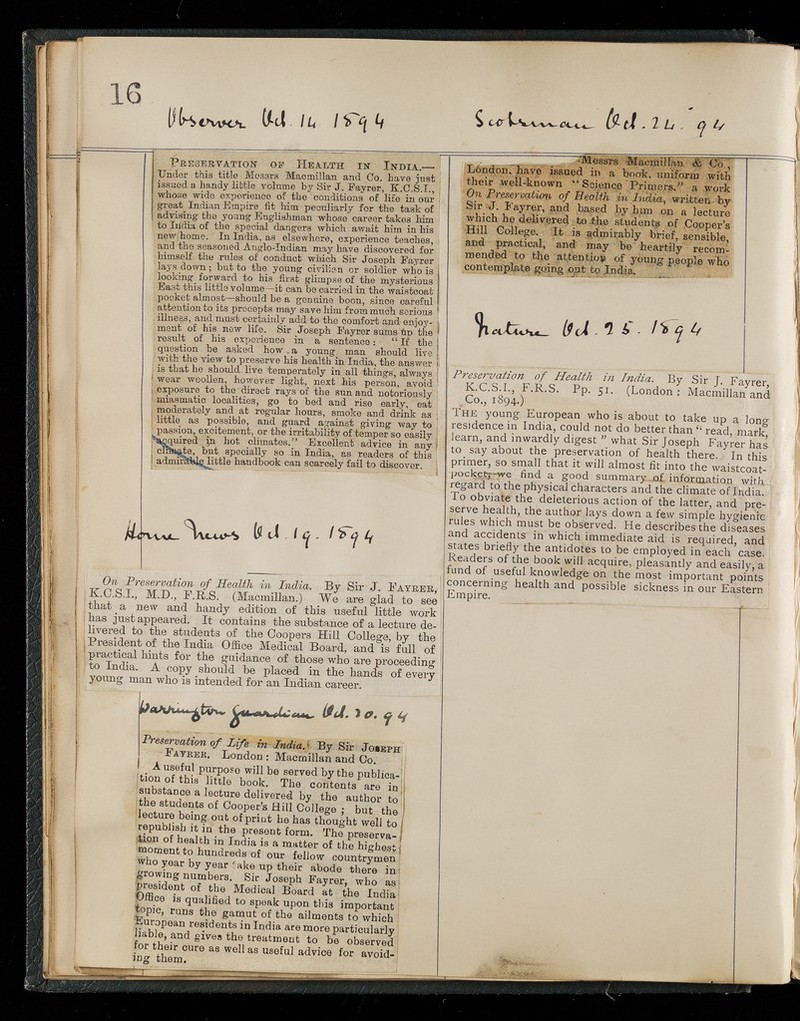 16
Observer Oct. 14 1894
PRESERVATION OF HEALTH IN INDIA.—
Under this title Messrs Macmillan and Co. have just
issued a handy little volume by Sir J. Fayrer, K.C.S.I.,
whose wide experience of the conditions of life in our
great Indian Empire fit him peculiarly for the task of
advising the young Englishman whose career takes him
to India of the special dangers which await him in his
new home. In India, as elsewhere, experience teaches,
and the seasoned Anglo-Indian may have discovered for
himself the rules of conduct which Sir Joseph Fayrer
lays down; but to the young civilian or soldier who is
looking forward to his first glimpse of the mysterious
East this little volume—it can be carried in the waistcoat
pocket almost—should be a genuine boon, since careful
attention to its precepts may save him from much serious
illness, and must certainly add to the comfort and enjoy-
ment of his new life. Sir Joseph Fayrer sums up the
result of his experience in a sentence: "If the
question be asked how a young man should live
with the view to preserve his health in India, the answer
is that he should live temperately in all things, always
wear woollen, however light, next his person, avoid
exposure to the direct rays of the sun and notoriously
miasmatic localities, go to bed and rise early, eat
moderately and at regular hours, smoke and drink as
little as possible, and guard against giving way to
passion, excitement, or the irritability of temper so easily
acquired in hot climates." Excellent advice in any
climate, but specially so in India, as readers of this
admirable little handbook can scarcely fail to discover.
Home News Oct. 19. 1894
On Preservation of Health in India. By Sir J. FAYRER,
K.C.S.I., M.D., F.R.S. (Macmillan.) We are glad to see
that a new and handy edition of this useful little work
has just appeared. It contains the substance of a lecture de-
livered to the students of the Coopers Hill College, by the
President of the India Office Medical Board, and is full of
practical hints for the guidance of those who are proceeding
to India. A copy should be placed in the hands of every
young man who is intended for an Indian career.
Warrington Guardian Oct. 20. 94
Preservation of Life in India. By Sir JOSEPH
FAYRER. London: Macmillan and Co.
A useful purpose will be served by the publica-
tion of this little book. The contents are in
substance a lecture delivered by the author to
the students of Cooper's Hill College; but the
lecture being out of print he has thought well to
republish it in the present form. The preserva-
tion of health in India is a matter of the highest
moment to hundreds of our fellow countrymen
who year by year take up their abode there in
growing numbers. Sir Joseph Fayrer, who as
president of the Medical Board at the India
Office is qualified to speak upon this important
topic, runs the gamut of the ailments to which
European residents in India are more particularly
liable, and gives the treatment to be observed
for their cure as well as useful advice for avoid-
ing them.
Scotsman Oct. 24. 94
Messrs Macmillan & Co.,
London, have issued in a book, uniform with
their well-known "Science Primers," a work
On Preservation of Health in India, written by
Sir J. Fayrer, and based by him on a lecture
which he delivered to the students of Cooper's
Hill College. It is admirably brief, sensible,
and practical, and may be heartily recom-
mended to the attention of young people who
contemplate going out to India.
Nature Oct. 25. 1894
Preservation of Health in India. By Sir J. Fayrer,
K.C.S.I., F.R.S. Pp. 51. (London: Macmillan and
Co., 1894.)
THE young European who is about to take up a long
residence in India, could not do better than "read, mark,
learn, and inwardly digest" what Sir Joseph Fayrer has
to say about the preservation of health there. In this
primer, so small that it will almost fit into the waistcoat-
pocket, we find a good summary of information with
regard to the physical characters and the climate of India.
To obviate the deleterious action of the latter, and pre-
serve health, the author lays down a few simple hygienic
rules which must be observed. He describes the diseases
and accidents in which immediate aid is required, and
states briefly the antidotes to be employed in each case.
Readers of the book will acquire, pleasantly and easily, a
fund of useful knowledge on the most important points
concerning health and possible sickness in our Eastern
Empire.